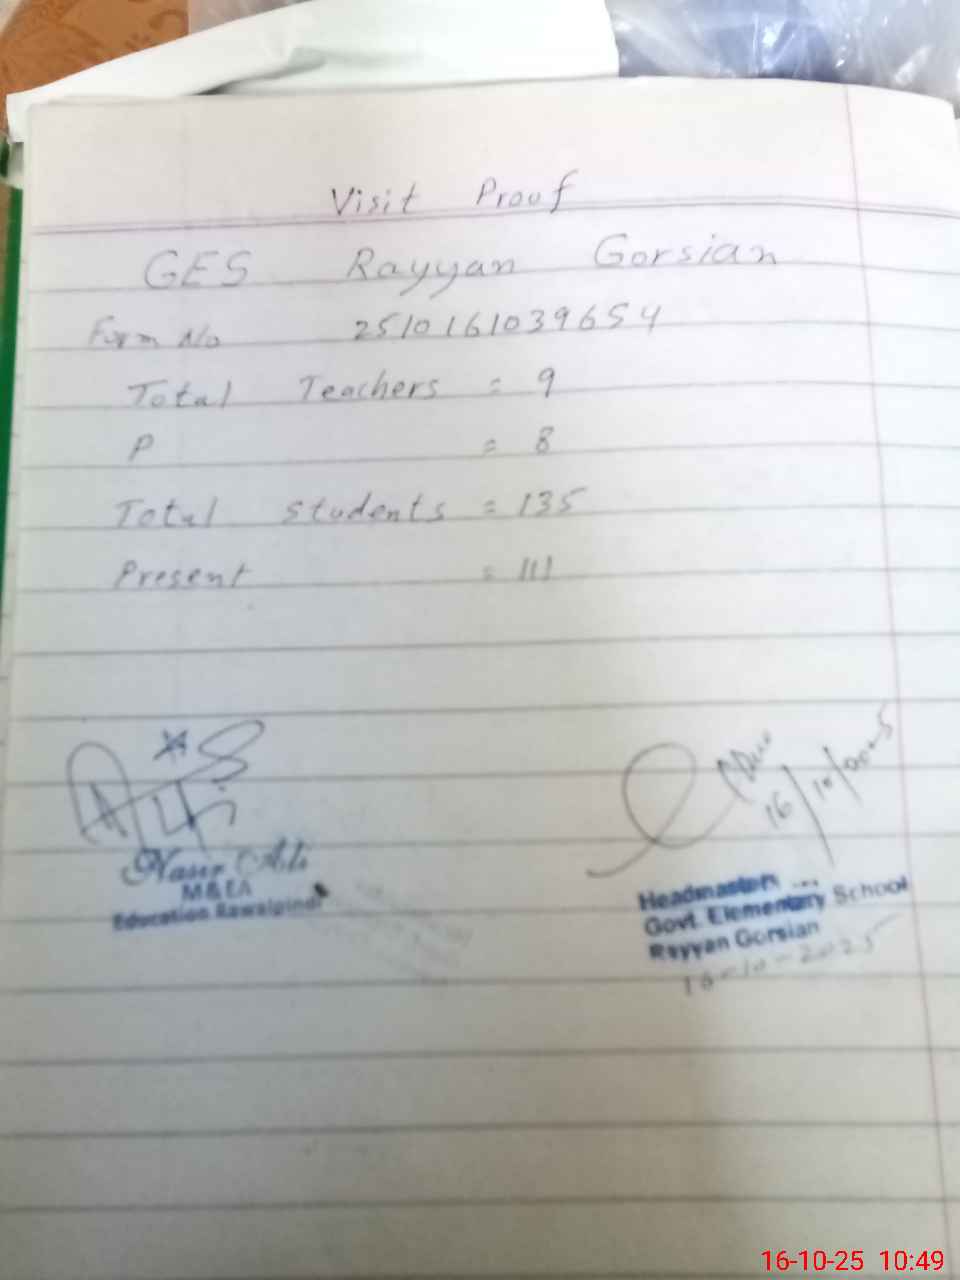 Visit Proof
GES Rayyan Gorsian
Form No 2510161039654
Total Teachers = 9
P = 8
Total students = 135
Present = 111
16/10/2025
Nasir Ali
M&EA
Education Rawalpindi
Headmaster
Govt. Elementary School
Rayyan Gorsian
16-10-2025
16-10-25 10:49